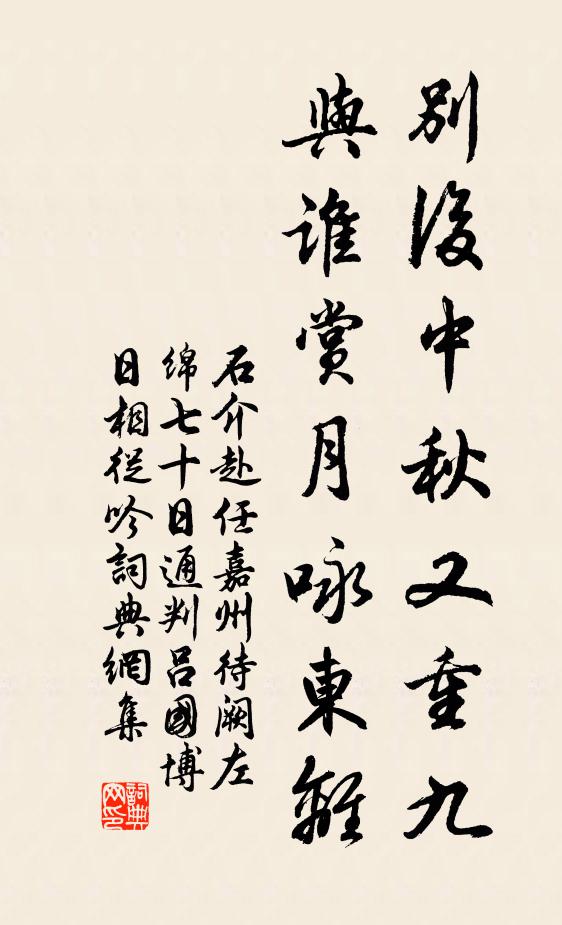 別後中秋又重九
與誰賞月咏東離
石介赴任嘉州待闕左
綿七十日通判呂國博
日相從吟詞典網集
詞典
网印